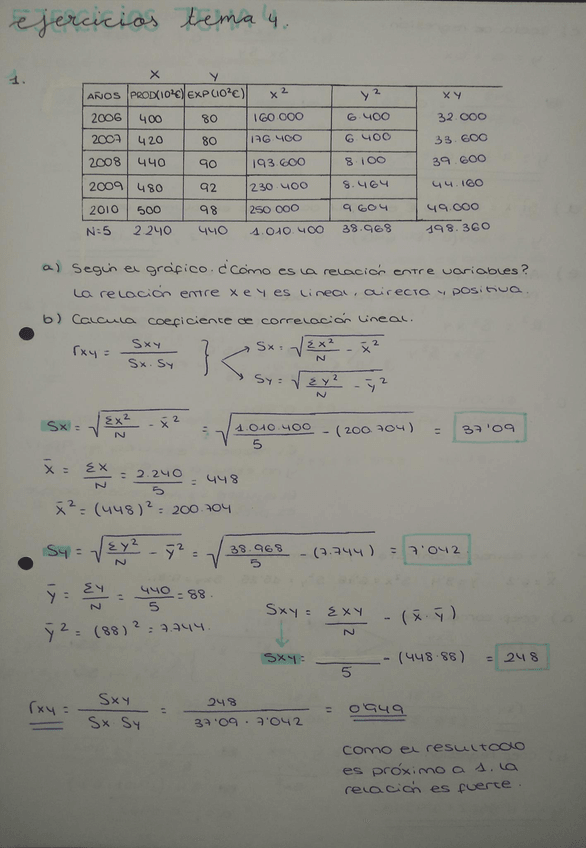 ejercicios tema 4.
1.
X Y
AÑOS PROD(10²€) EXP(10²€) X² Y² XY
2006 400 80 160 000 6.400 32.000
2007 420 80 176.400 6.400 33.600
2008 440 90 193.600 8.100 39.600
2009 480 92 230.400 8.464 44.160
2010 500 98 250 000 9.604 49.000
N=5 2.240 440 1.010.400 38.968 198.360
a) Según el gráfico. ¿Cómo es la relación entre variables?
La relación entre X e Y es lineal, directa y positiva.
b) Calcula coeficiente de correlación lineal.
rxy = Sxy / Sx·Sy } → Sx = √(ΣX²/N - x̄²)
→ Sy = √(ΣY²/N - ȳ²)
Sx = √(ΣX²/N - x̄²) = √(1.010.400/5 - (200.704)) = 37'09
x̄ = ΣX/N = 2.240/5 = 448
x̄² = (448)² = 200.704
Sy = √(ΣY²/N - ȳ²) = √(38.968/5 - (7.744)) = 7'042
ȳ = ΣY/N = 440/5 = 88.
ȳ² = (88)² = 7.744.
Sxy = ΣXY/N - (x̄·ȳ)
↓
Sxy = /5 - (448·88) = 248
rxy = Sxy / Sx·Sy = 248 / 37'09 · 7'042 = 0'949
como el resultado
es próximo a 1, la
relación es fuerte.